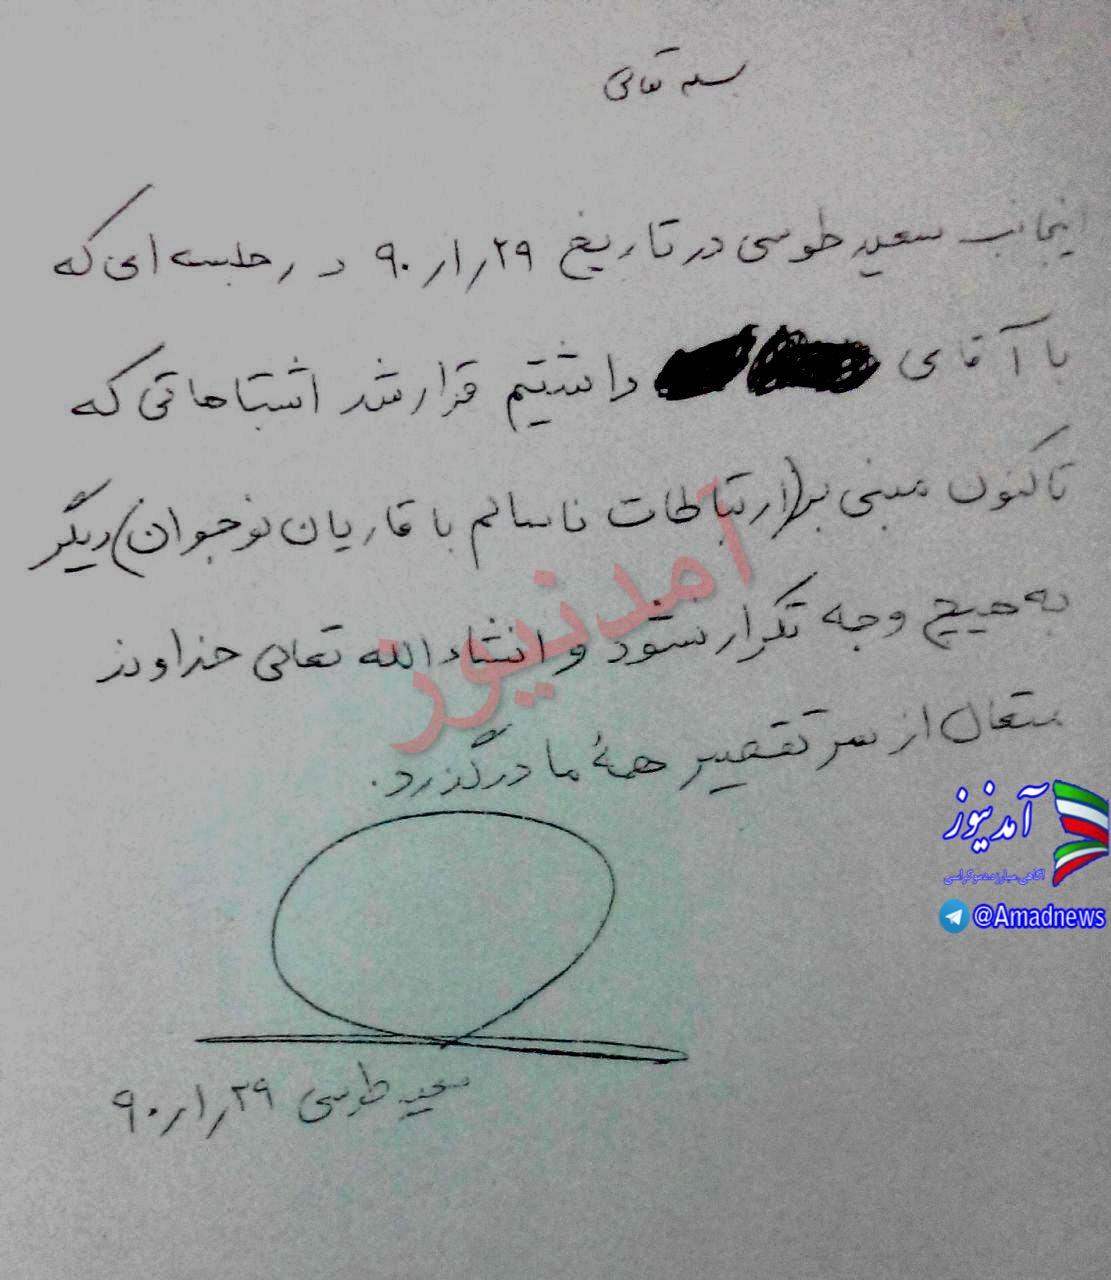 بسمه تعالی
اینجانب سعید طوسی در تاریخ ۲۹ر۱ر۹۰ در جلسه ای که
با آقای داشتیم قرار شد اشتباهاتی که
تاکنون مبنی بر (ارتباطات ناسالم با قاریان نوجوان) دیگر
به هیچ وجه تکرار نشود و انشاءالله تعالی خداوند
متعال از سر تقصیر همهٔ ما درگذرد.
سعید طوسی ۲۹ر۱ر۹۰
آمدنیوز
آمدنیوز
آگاهی مبارزه دموکراسی
@Amadnews